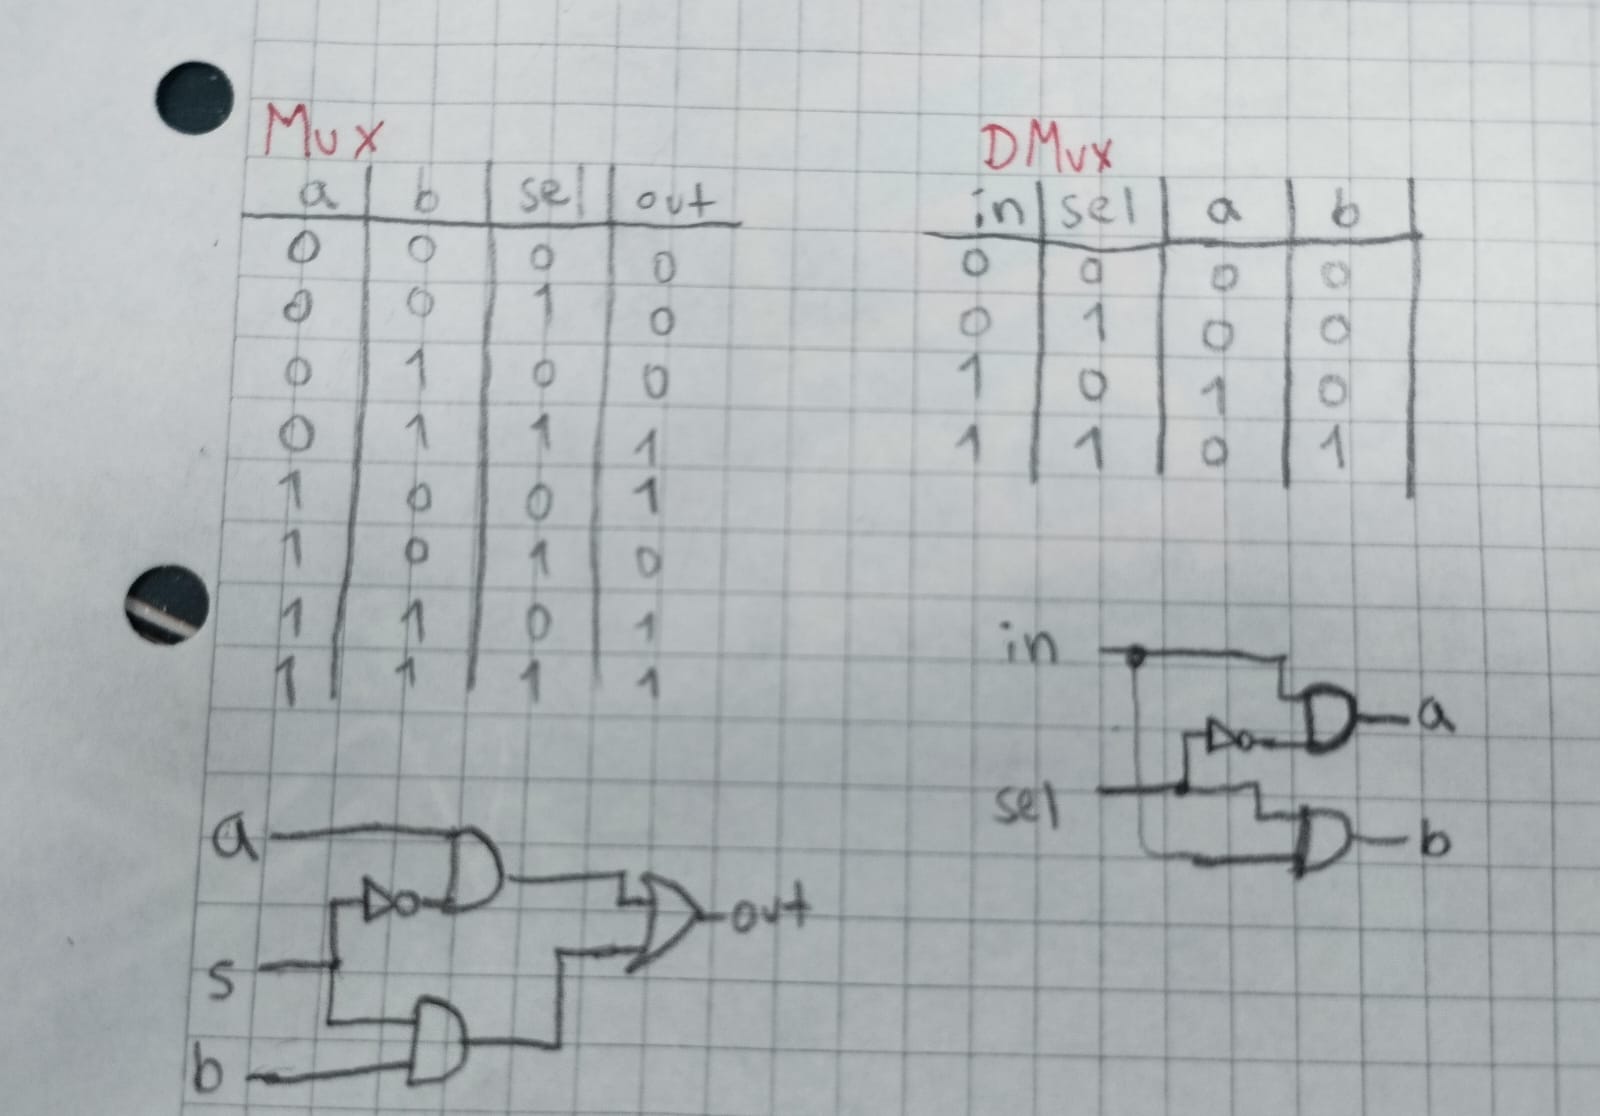 Mux
a b sel out
0 0 0 0
0 0 1 0
0 1 0 0
0 1 1 1
1 0 0 1
1 0 1 0
1 1 0 1
1 1 1 1
a
s
b
out
DMux
in sel a b
0 0 0 0
0 1 0 0
1 0 1 0
1 1 0 1
in
a
sel
b